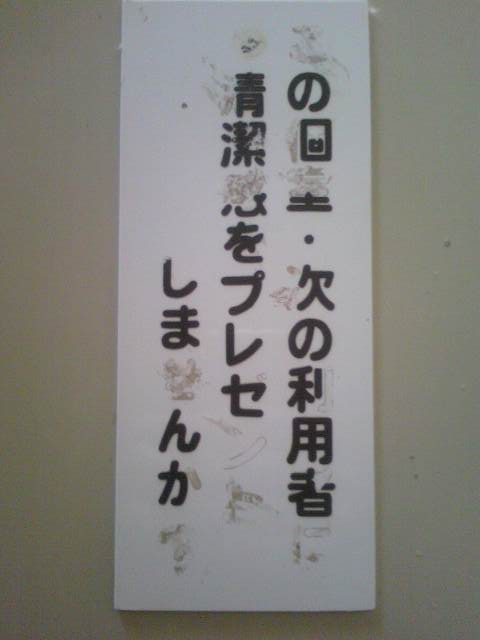 の・欠の利用者
青潔をプレセ
しまんか